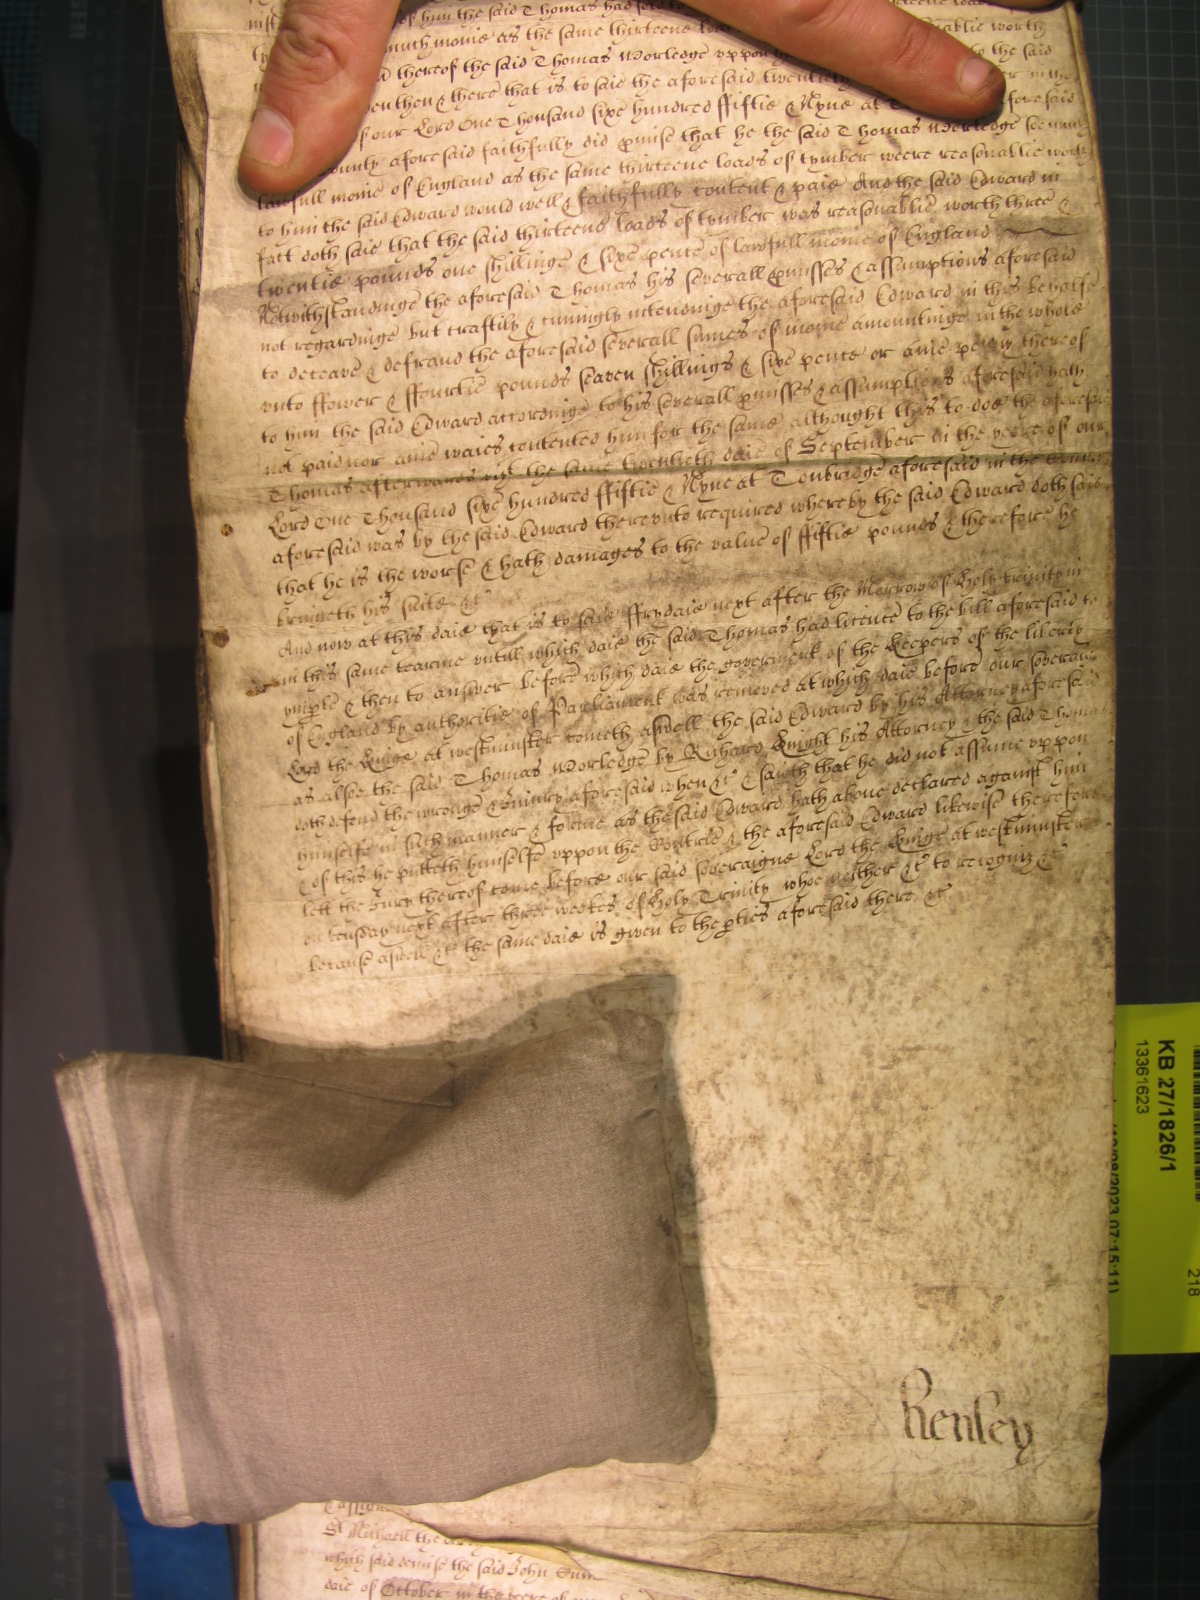 of him the said Thomas had sold to
much monie as the same thirteene loads worth
thereof the said Thomas Worledge uppon to the said
then & there that is to said the aforesaid twentieth in the
of our Lord One Thousand sixe hundred ffiftie & Nyne at aforesaid
county aforesaid faithfully did pmise that he the said Thomas Worledge soe much
lawfull monie of England as the same thirteene loads of tymber weere reasonablie worth
to him the said Edward would well & faithfully content & paie And the said Edward in
fact doth saie that the said thirteene loads of tymber was reasonablie worth three &
twentie pounds one shillinge & sixe pence of lawfull monie of England
Notwithstandinge the aforesaid Thomas his severall pmisses & assumptions aforesaid
not regardinge but craftily & cuningly intendinge the aforesaid Edward in this behalfe
to deceave & defraud the aforesaid severall sumes of monie amountinge in the whole
unto ffower & ffourtie pounds seaven shillings & sixe pence or anie penny thereof
to him the said Edward accordinge to his severall pmisses & assumptions aforesaid hath
not paid nor anie waies contented him for the same althought this to doe the aforesaid
Thomas afterwards vizt the same twentieth daie of September in the yeere of our
Lord One Thousand sixe hundred ffiftie & Nyne at Tonbridge aforesaid in the County
aforesaid was by the said Edward thereunto required whereby the said Edward doth saie
that he is the worse & hath damages to the value of ffiftie pounds & therefore he
bringeth his suite &c
And now at this daie that is to saie ffrydaie next after the Morrow of Holy Trinity in
in this same tearme untill which daie the said Thomas had licence to the bill aforesaid to
imparle & then to answer before which daie the goverment of the Keepers of the liberty
of England by authoritie of Parliament was removed at which daie before our soveraigne
Lord the Kinge at westminster cometh aswell the said Edward by his Attorney aforesaid
as alsoe the said Thomas Worledge by Richard Knight his Attorney & the said Thomas
doth defend the wronge & iniury aforesaid when &c & saith that he did not assume uppon
himselfe in such manner & forme as the said Edward hath above declared against him
& of this he putteth himselfe uppon the Countrie & the aforesaid Edward likewise therefore
lett the Jury thereof come before our said soveraigne Lord the Kinge at westminster
on tuesday next after three weekes of Holy Trinity whoe neither &c to recogniz &c
because aswell &c the same daie is given to the pties aforesaid there &c
Henley
& assigne
St Michaell the
which said demise the said John
daie of October in the yeere of
KB 27/1826/1
13361623
218
07:15:11)